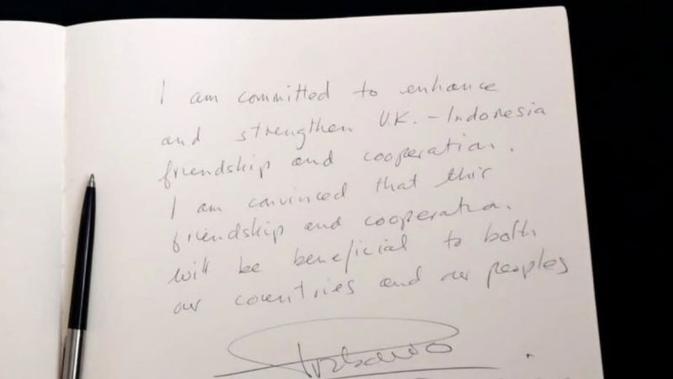 I am committed to enhance
and strengthen U.K. - Indonesia
friendship and cooperation.
I am convinced that this
friendship and cooperation.
will be beneficial to both
our countries and our peoples
Prabowo